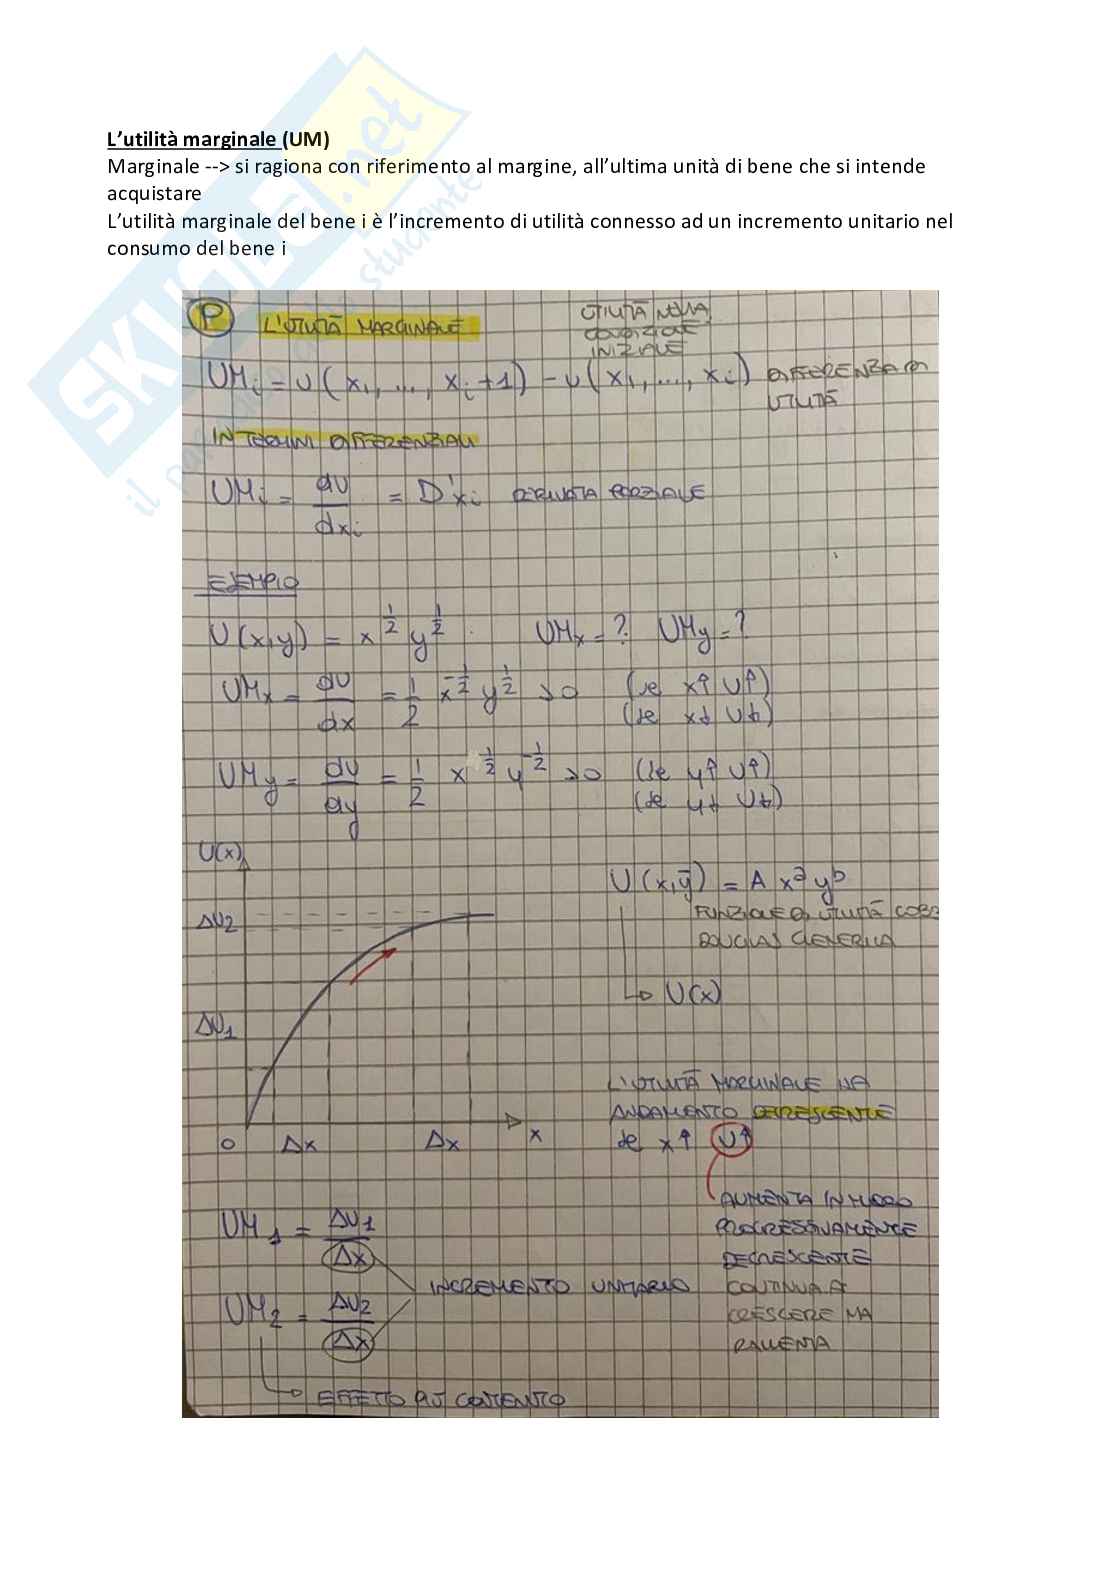 L'utilità marginale (UM)
Marginale --> si ragiona con riferimento al margine, all'ultima unità di bene che si intende
acquistare
L'utilità marginale del bene i è l'incremento di utilità connesso ad un incremento unitario nel
consumo del bene i
SKUOLA.net
il paradiso dello studente
P L'UTILITÀ MARGINALE
UTILITÀ NELLA
CONDIZIONE
INIZIALE
UMi = U(x1, ..., xi+1) - U(x1, ..., xi) DIFFERENZA DI
UTILITÀ
IN TERMINI DIFFERENZIALI
UMi = dU/dxi = D'xi DERIVATA PARZIALE
ESEMPIO
U(x,y) = x^1/2 y^1/2 UMx = ? UMy = ?
UMx = dU/dx = 1/2 x^-1/2 y^1/2 >0 (se x↑ U↑)
(se x↓ U↓)
UMy = dU/dy = 1/2 x^1/2 y^-1/2 >0 (se y↑ U↑)
(se y↓ U↓)
U(x)
U(x,ȳ) = A x^a y^b
ΔU2
FUNZIONE DI UTILITÀ COBB
DOUGLAS GENERICA
U(x)
ΔU1
L'UTILITÀ MARGINALE HA
ANDAMENTO DECRESCENTE
0 Δx Δx x
se x↑ U↑
AUMENTA IN MODO
PROGRESSIVAMENTE
DECRESCENTE
CONTINUA A
CRESCERE MA
RALLENTA
UM1 = ΔU1/Δx
INCREMENTO UNITARIO
UM2 = ΔU2/Δx
EFFETTO PIÙ CONTENUTO